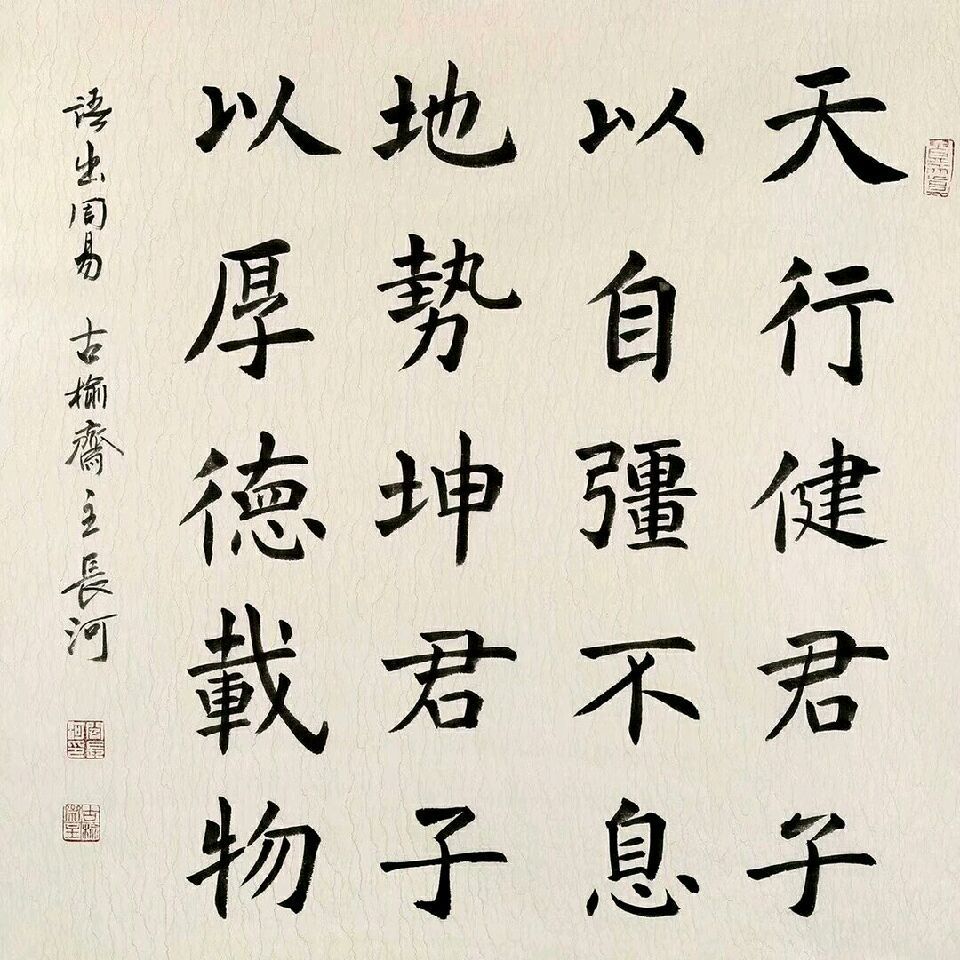 天行健君子
以自彊不息
地勢坤君子
以厚德載物
語出周易 古榆齋主長河